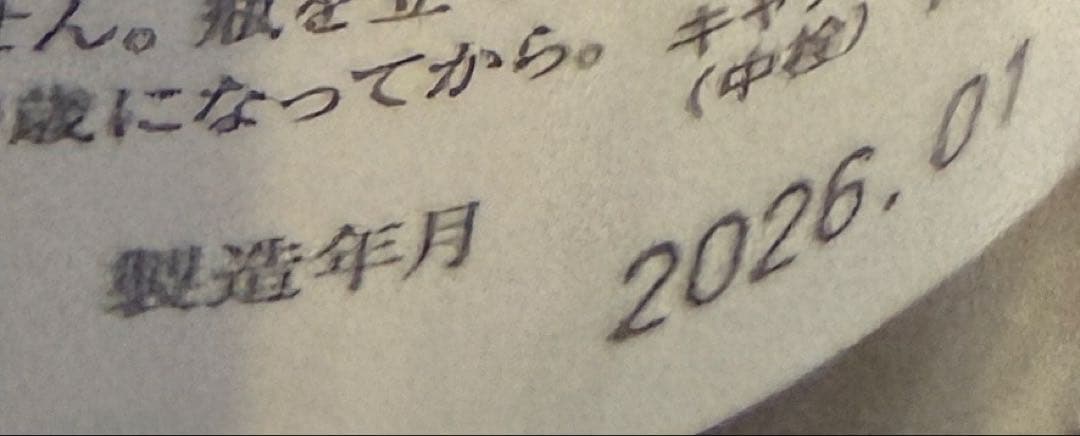 せん。瓶を立
歳になってから。
キャ
(中栓)
製造年月 2026.01